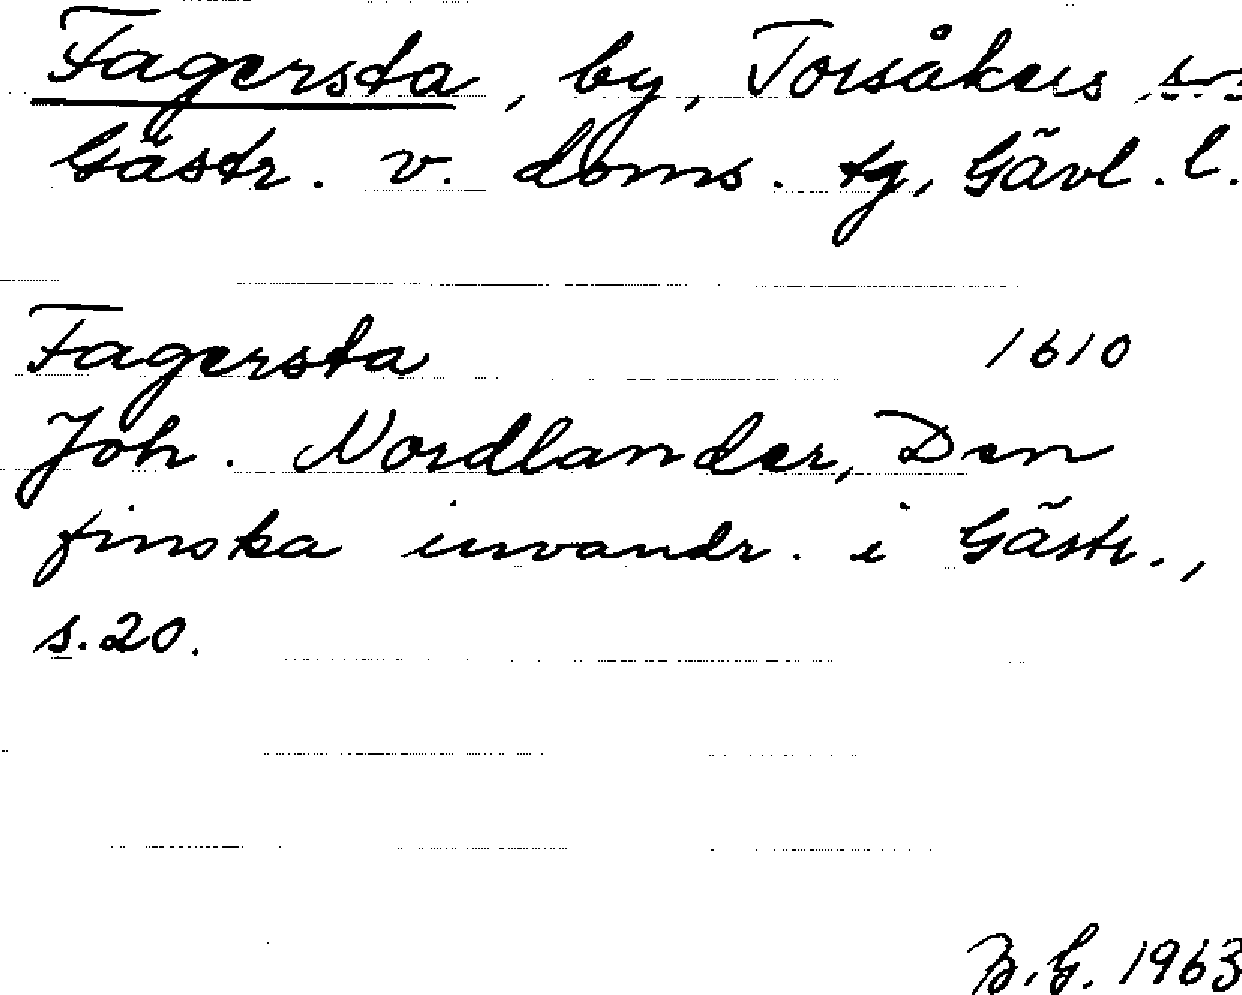 Fagersta, by, Torsåkers sn
Gästr. v. doms. tg, Gävl. l.
Fagersta 1610
Joh. Nordlander, Den
finska invandr. i Gästr.,
s. 20.
B.G. 1963